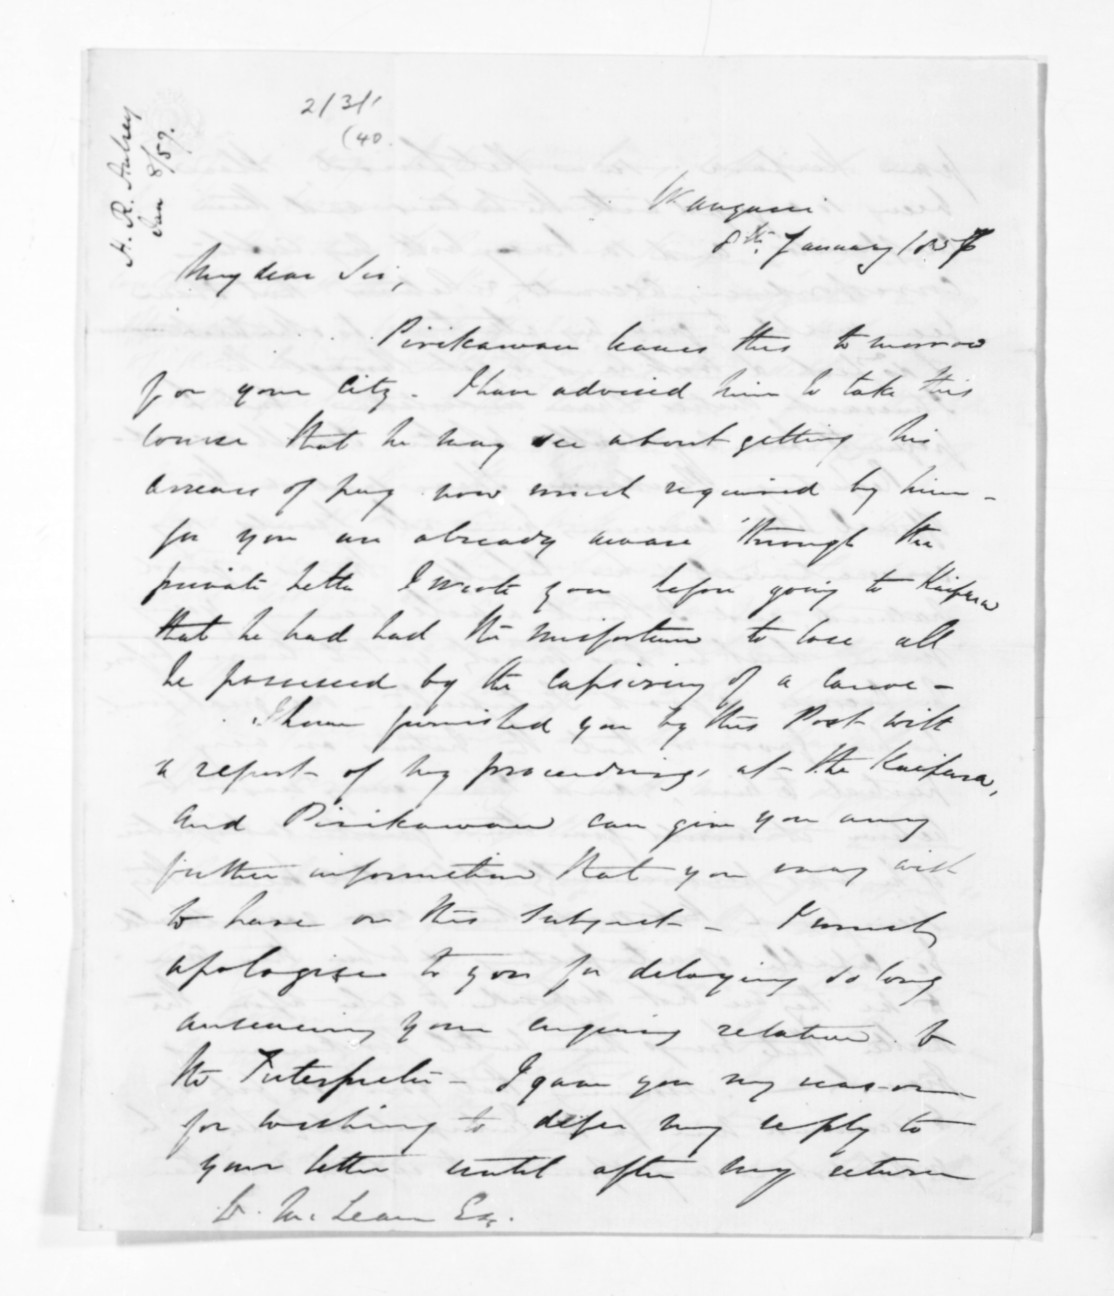 H. R. Aubrey
Jan 8/57.
2/3/1
(40.
Wangarei
8th January 1857
My dear Sir,
Pirikawau leaves this tomorrow
for your City. I have advised him to take this
course that he may see about getting his
arrears of pay now much required by him -
for you are already aware through the
private letter I wrote you before going to Kaipara
that he had had the misfortune to lose all
he possessed by the capsizing of a canoe -
I have furnished you by this Post with
a report of my proceedings at the Kaipara,
and Pirikawau can give you any
further information that you may wish
to have on this subject - I must
apologise to you for delaying so long
answering your enquiry relative to
the Interpreter - I gave you my reason
for wishing to defer my reply to
your letter until after my return
D. McLean Esq.